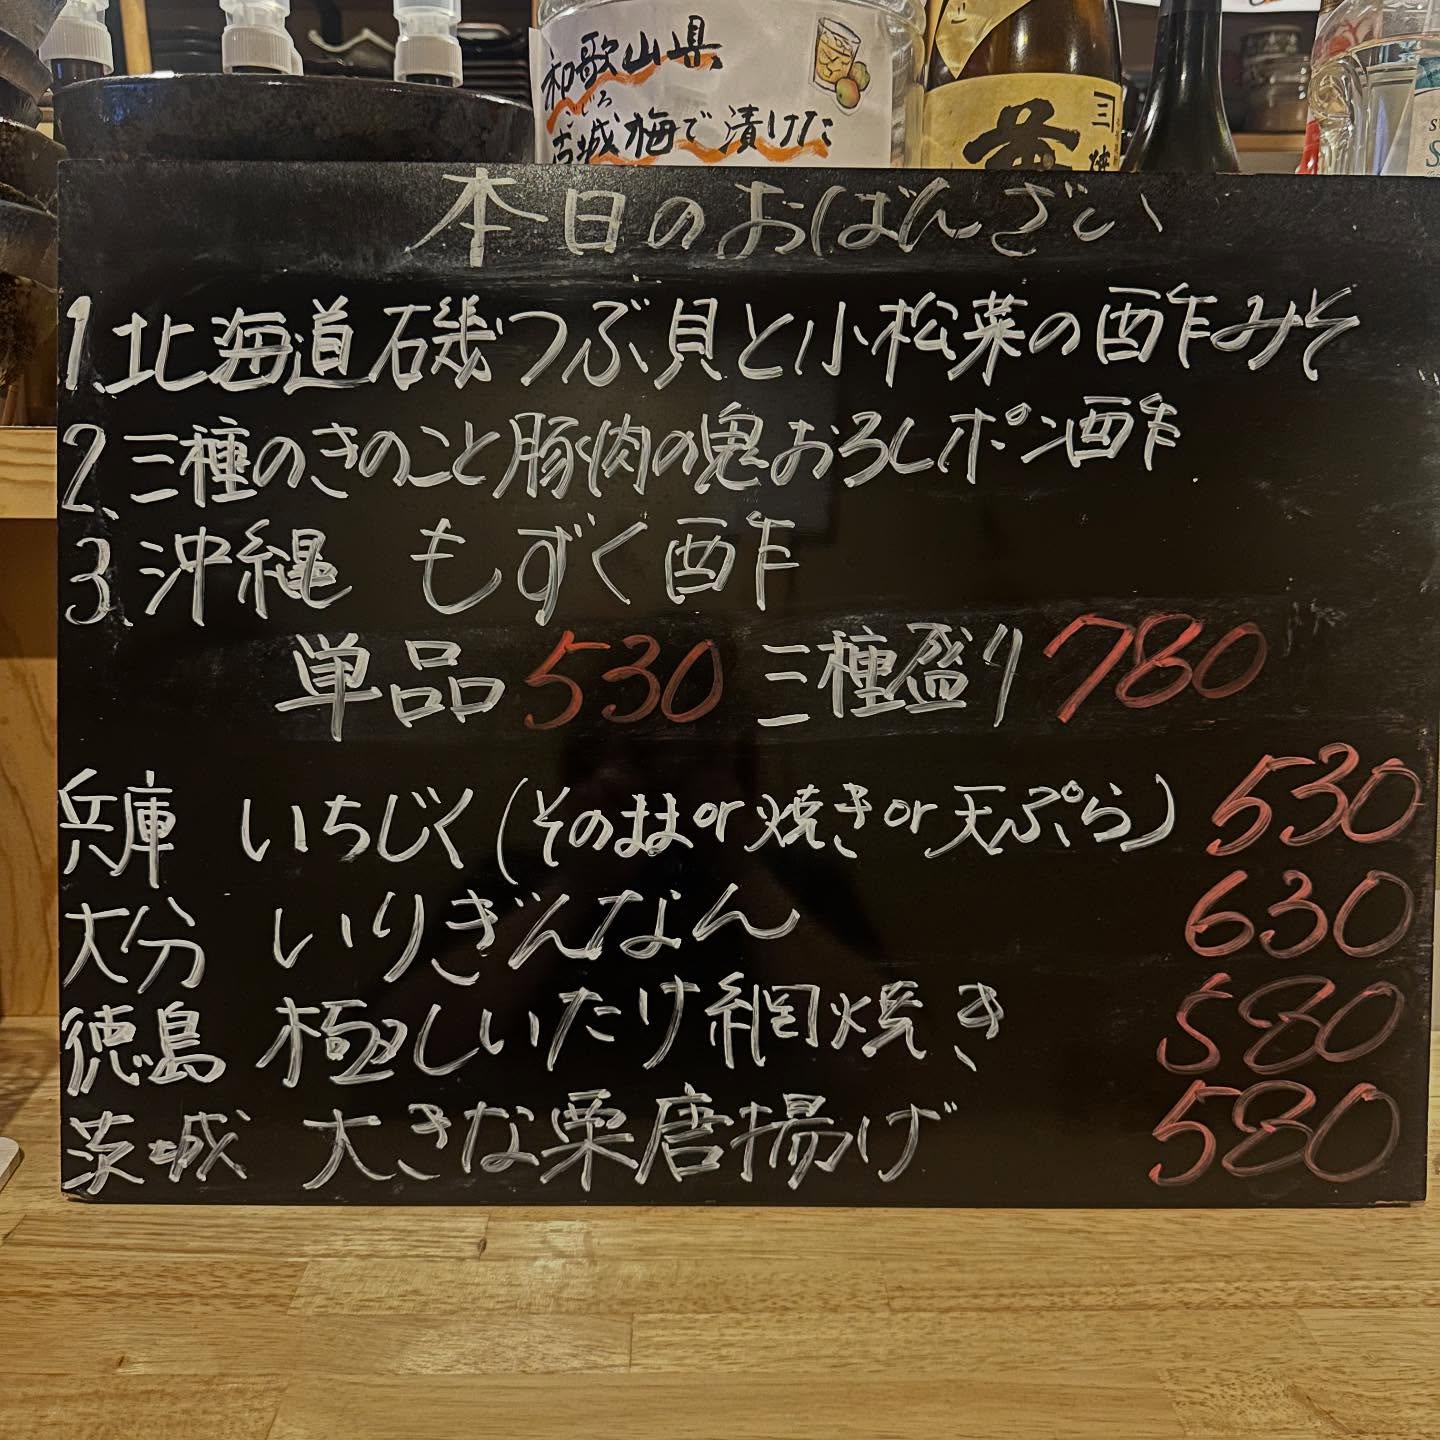 和歌山県
ごろ
古城梅で漬けた
三
本日のおばんざい
1.北海道磯つぶ貝と小松菜の酢みそ
2.三種のきのこと豚肉の鬼おろしポン酢
3.沖縄 もずく酢
単品530 三種盛り780
兵庫 いちじく(そのままor焼きor天ぷら) 530
大分 いりぎんなん 630
徳島 極しいたけ網焼き 580
茨城 大きな栗唐揚げ 580